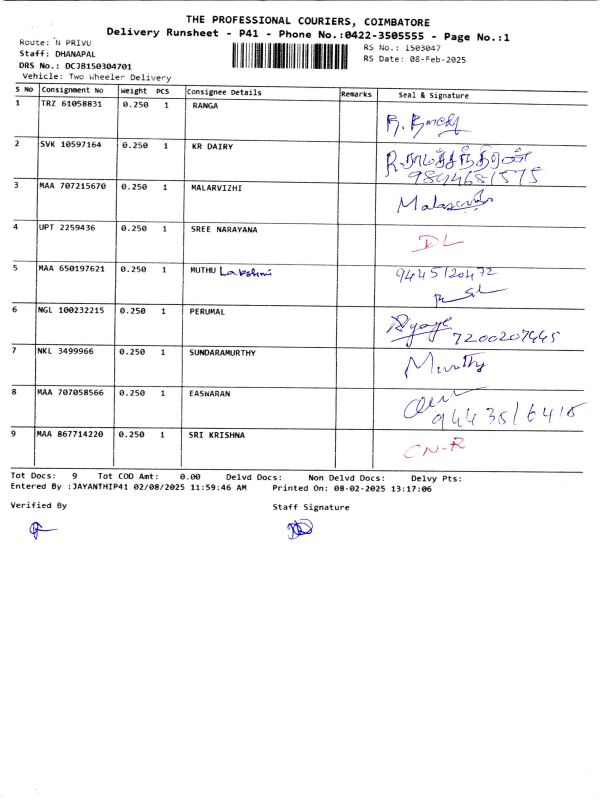 THE PROFESSIONAL COURIERS, COIMBATORE
Delivery Runsheet - P41 - Phone No.:0422-3505555 - Page No.:1
Route: N PRIVU
RS No.: 1503047
Staff: DHANAPAL
RS Date: 08-Feb-2025
DRS No.: DCJB150304701
Vehicle: Two Wheeler Delivery
S No Consignment No Weight PCS Consignee Details Remarks Seal & Signature
1 TRZ 61058831 0.250 1 RANGA
2 SVK 10597164 0.250 1 KR DAIRY
9894681575
3 MAA 707215670 0.250 1 MALARVIZHI
4 UPT 2259436 0.250 1 SREE NARAYANA DL
5 MAA 650197621 0.250 1 MUTHU Lakshmi 9445120472
6 NGL 100232215 0.250 1 PERUMAL
7200207445
7 NKL 3499966 0.250 1 SUNDARAMURTHY Murthy
8 MAA 707058566 0.250 1 EASWARAN
9443516418
9 MAA 867714220 0.250 1 SRI KRISHNA CN-R
Tot Docs: 9 Tot COD Amt: 0.00 Delvd Docs: Non Delvd Docs: Delvy Pts:
Entered By :JAYANTHIP41 02/08/2025 11:59:46 AM Printed On: 08-02-2025 13:17:06
Verified By Staff Signature